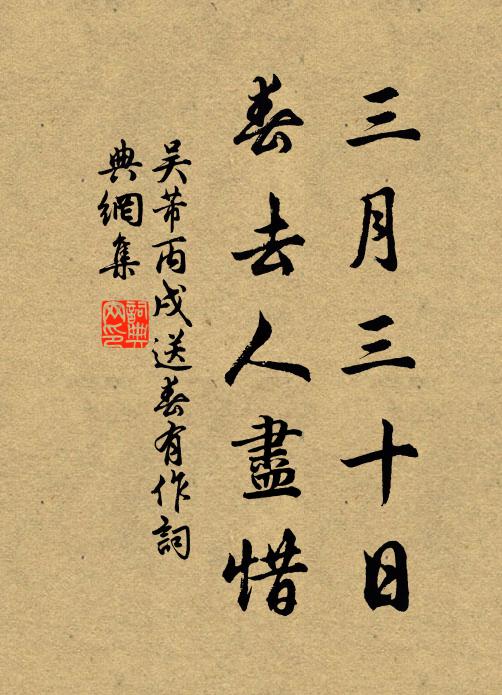 三月三十日
春去人盡惜
吴芾丙戌送春有作詞
典網集
詞典
网印